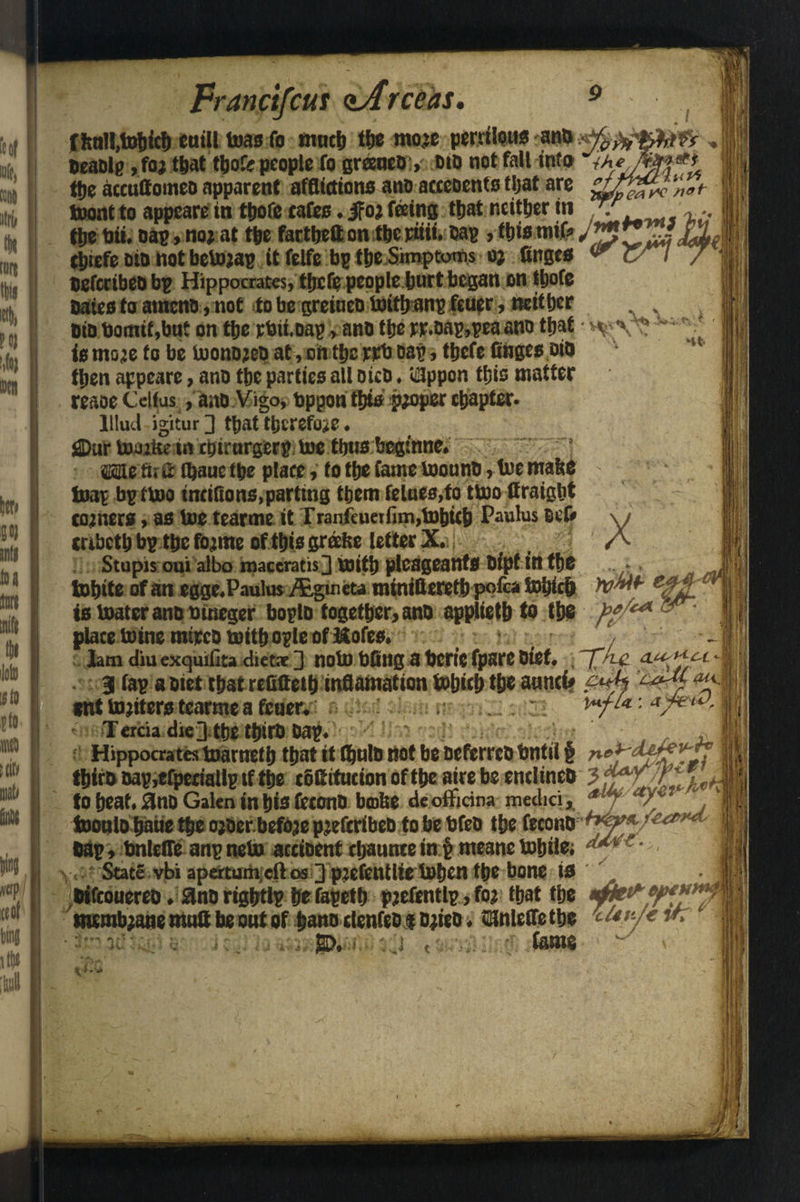 Franciſcus Arceas. 9
ſkull, which euill was ſo much the more perrilous and
deadly, for that thoſe people ſo greeued, did not fall into
the accuſtomed apparent afflictions and accedents that are
wont to appeare in thoſe caſes. For ſeeing that neither in
the vii. day, nor at the fartheſt on the xiiii. day, this miſ-
chiefe did not bewray it ſelfe by the Simptoms or ſinges
deſcribed by Hippocrates, theſe people hurt began on thoſe
daies to amend, not to be greiued with any feuer, neither
did vomit, but on the xvii. day, and the xx. day, yea and that
is more to be wondred at, on the xxv day, theſe ſinges did
then appeare, and the parties all died. Uppon this matter
reade Celſus, and Vigo, vppon this proper chapter.
Illud igitur ] that therefore.
Our worke in chirurgery we thus beginne.
We firſt ſhaue the place, to the ſame wound, we make
way by two inciſions, parting them ſelues, to two ſtraight
corners, as we tearme it Tranſcuerſim, which Paulus deſ-
cribeth by the forme of this greeke letter X.
Stupis oui albo maceratis ] with pleageants dipt in the
white of an egge. Paulus Ægineta miniſtereth poſca which
is water and vineger boyld together, and applieth to the
place wine mixed with oyle of Roſes.
Iam diu exquiſita dietæ ] now vſing a verie ſpare diet.
I ſay a diet that reſiſteth inflamation which the aunci-
ent writers tearme a feuer.
Tercia die ] the third day.
Hippocrates warneth that it ſhuld not be deferred vntil yͤ
third day, eſpeciallp if the cōſtitucion of the aire be enclined
to heat. And Galen in his ſecond booke de officina medici,
would haue the order before preſcribed to be vſed the ſecond
day, vnleſſe any new accident chaunce in yͤ meane while.
Statē vbi apertum eſt os ] preſentlie when the bone is
diſcouered. And rightly he ſayeth preſently, for that the
membrane muſt be out of hand clenſed & dried. Unleſſe the
D. ſame
The
appeare not
what
poſca
The
not defer
3 day
after opening
clenſe it.